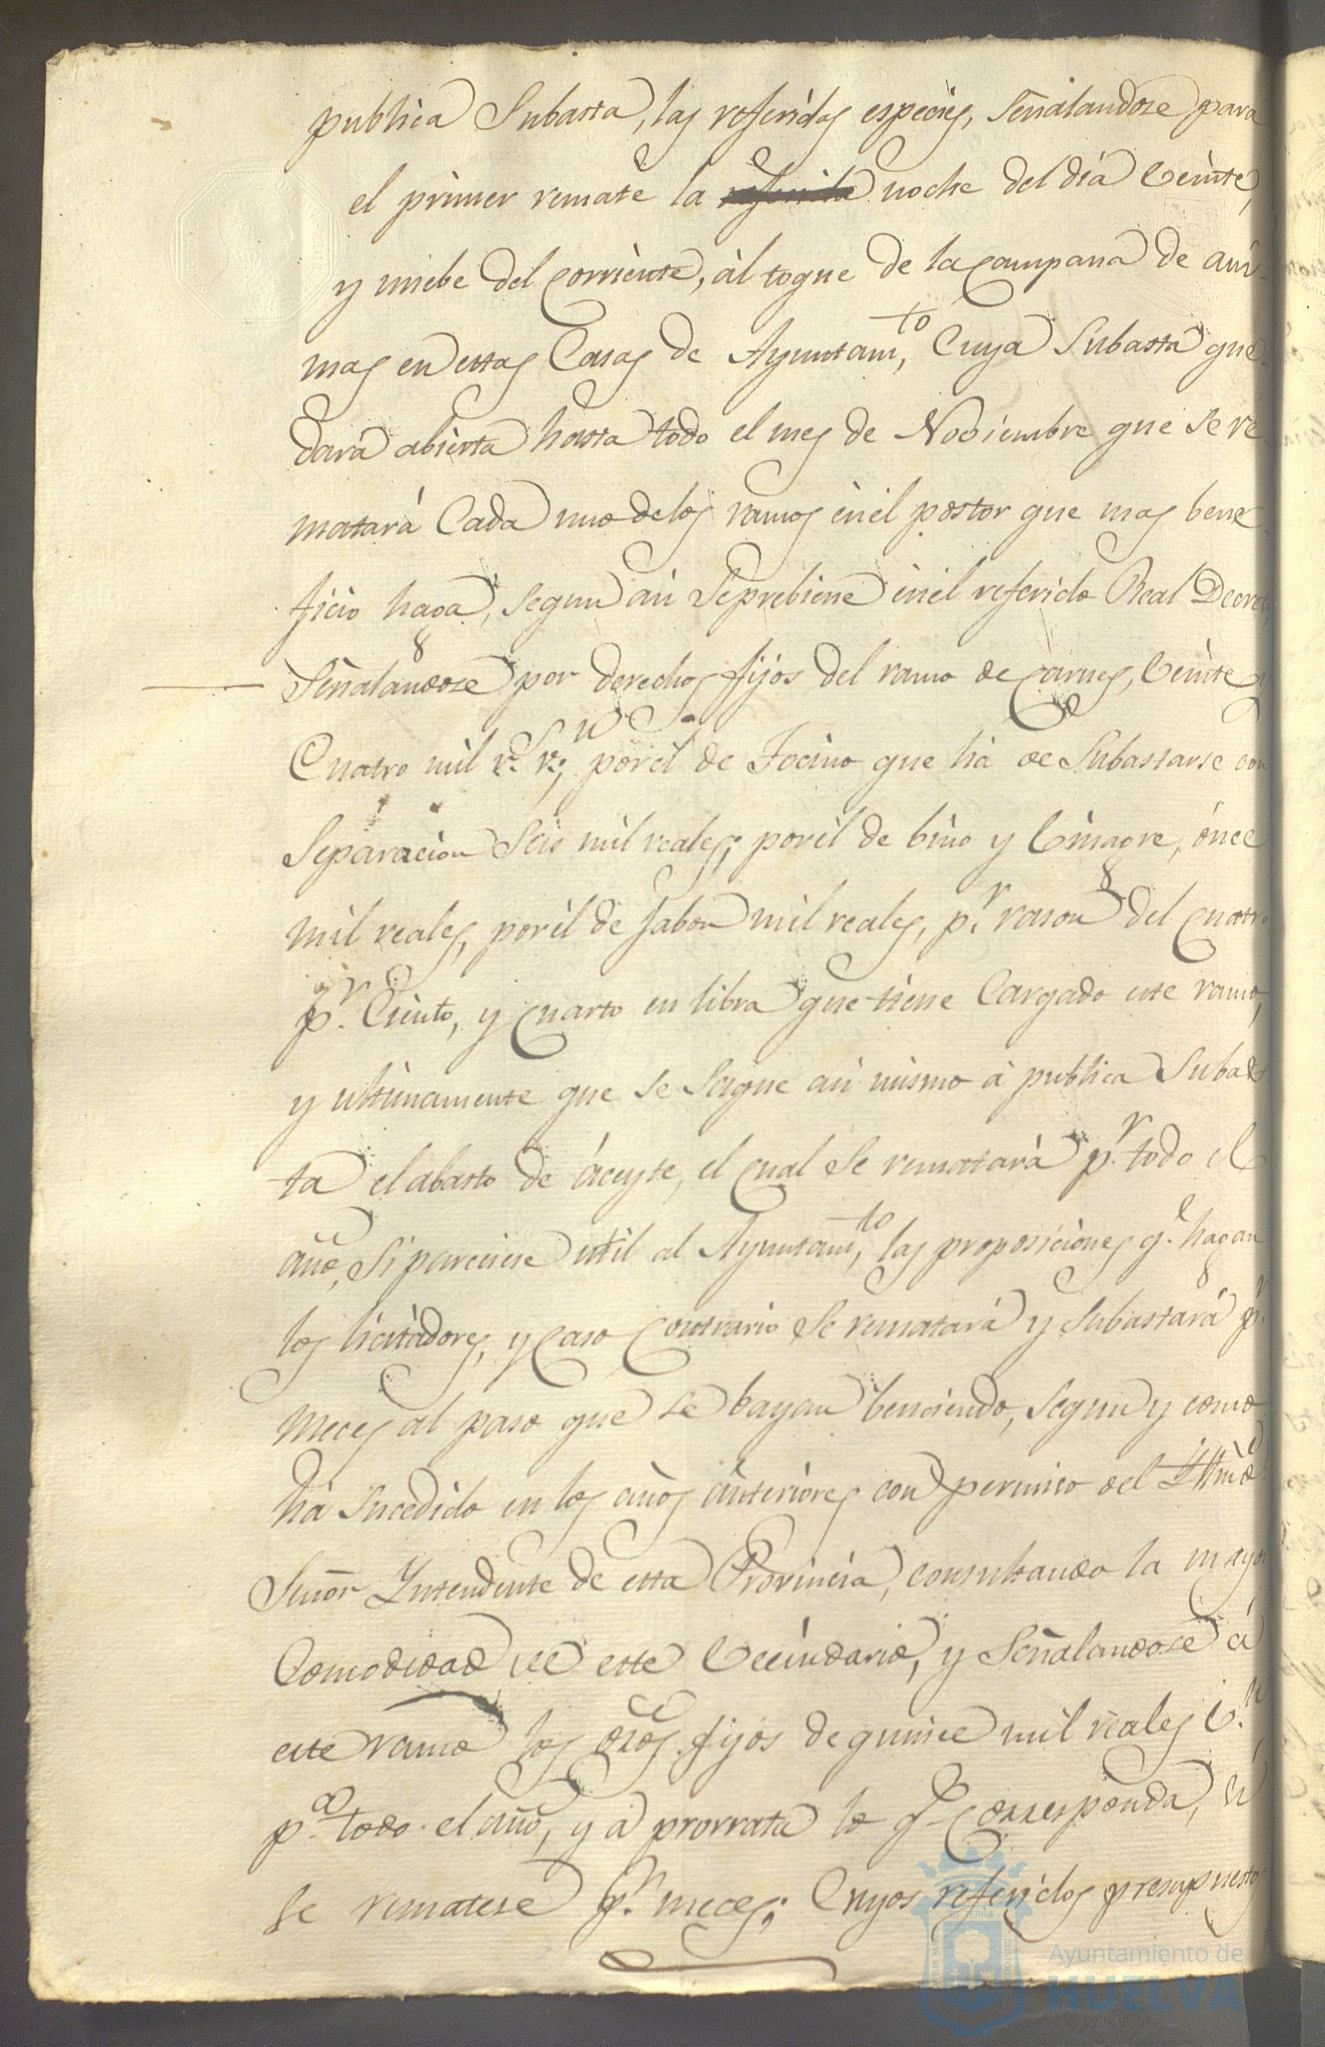 publica Subasta, las referidas especies, Señalandose para
el primer remate la referida noche del día beinte,
y nuebe del Corriente, àl toque de la Campana de ani-
mas en estas Casas de Ayuntam,to Cuya Subasta que-
dará abierta hasta todo el mes de Nobiembre que se re-
matará Cada uno de los ramos en èl postor que mas bene-
ficio haga, Segun asi Seprebiene en èl referido Real Decreto,
Señalandose por derechos fijos del ramo de Carnes, beinte y
Cuatro mil r.s v.n; por èl de Tocino que hà de Subastarse con
Separacion Seis mil reales; por èl de bino y binagre, once
mil reales, por èl de Jabon mil reales, p.r rason del Cuatro
p.r Ciento, y Cuarto en libra que tiene Cargado este ramo,
y ultimamente que se Saque asi mismo à publica Subas-
ta el abasto de áceyte, el Cual Se rematará p.r todo el
año, Si pareciese util al Ayuntam,to las proposiciones q.e hagan
los licitadores, y Caso Contrario Se rematará y Subastará p.r
meces al paso que se bayan benciendo, Segun y como
hà Sucedido en los años ànteriores con permiso del Yllmo
Señor Yntendente de esta Provincia, consultando la mayor
Comodidad de este becindario, y Señalandose á
este ramo los dros. fijos de quince mil reales b.n
p.a todo el año, y a prorrata lo q.e Corresponda, si
se rematese p.r meces; Cuyos referidos presupuestos
Ayuntamiento de
HUELVA